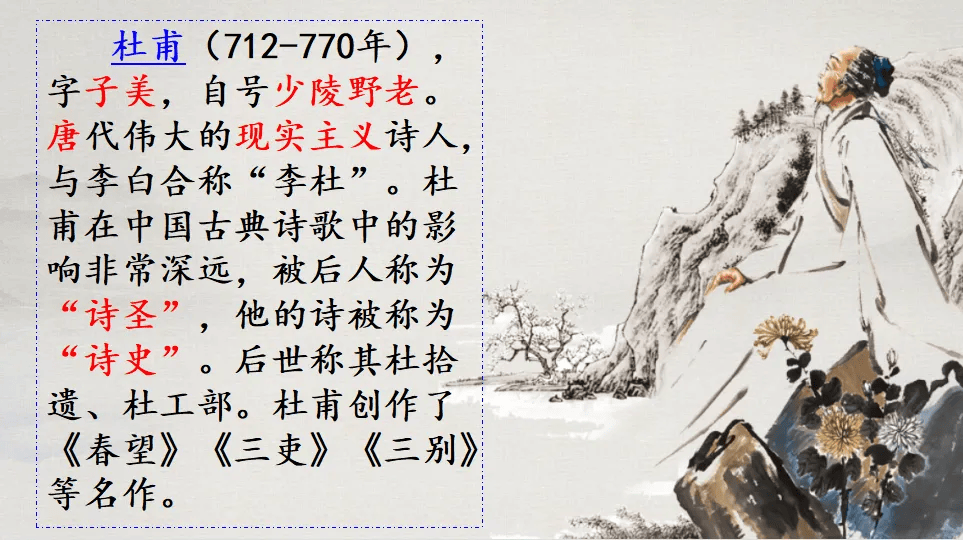 杜甫（712-770年），
字子美，自号少陵野老。
唐代伟大的现实主义诗人，
与李白合称“李杜”。杜
甫在中国古典诗歌中的影
响非常深远，被后人称为
“诗圣”，他的诗被称为
“诗史”。后世称其杜拾
遗、杜工部。杜甫创作了
《春望》《三吏》《三别》
等名作。